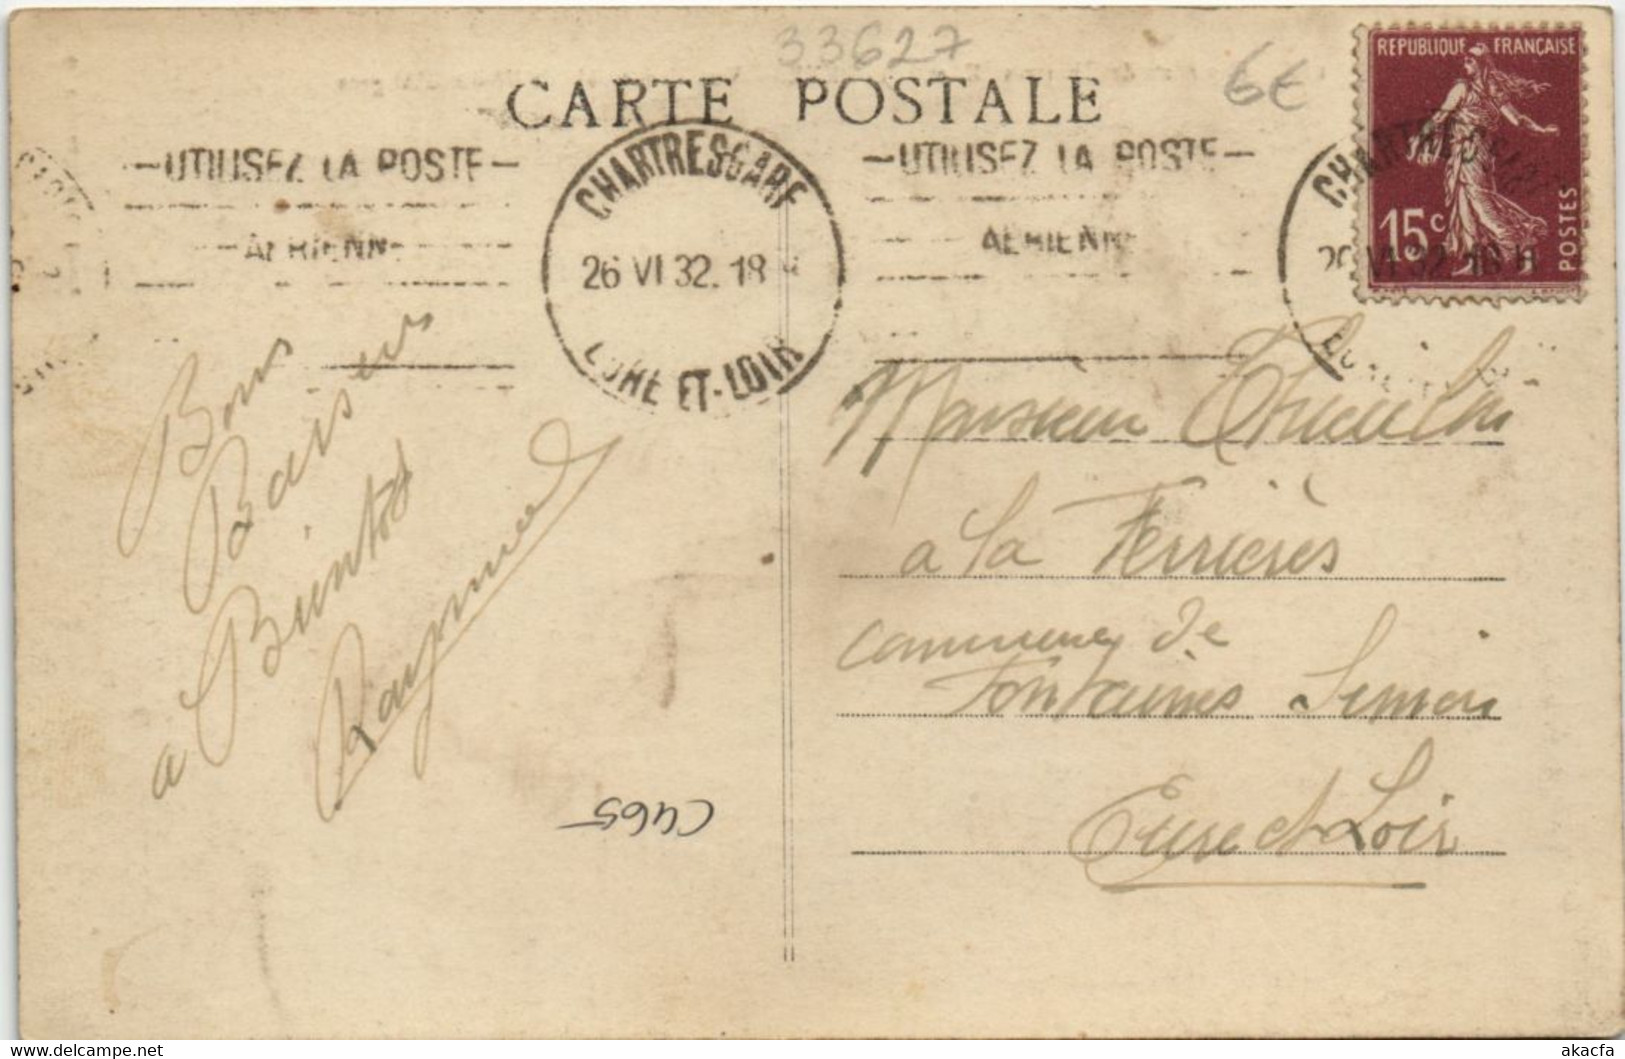 33627
6€
CARTE POSTALE
REPUBLIQUE FRANÇAISE
15c
POSTES
—UTILISEZ LA POSTE—
—AERIENNE—
CHARTRES GARE
26 VI 32. 18 H
EURE-ET-LOIR
—UTILISEZ LA POSTE—
AERIENNE
CHARTRES GARE
26 VI 32. 18 H
Bons
Baisers
a Bientot
Raymond
C465
Monsieur
a la Ferrières
commune de
Fontaines Simon
Eure et Loir
akacfa